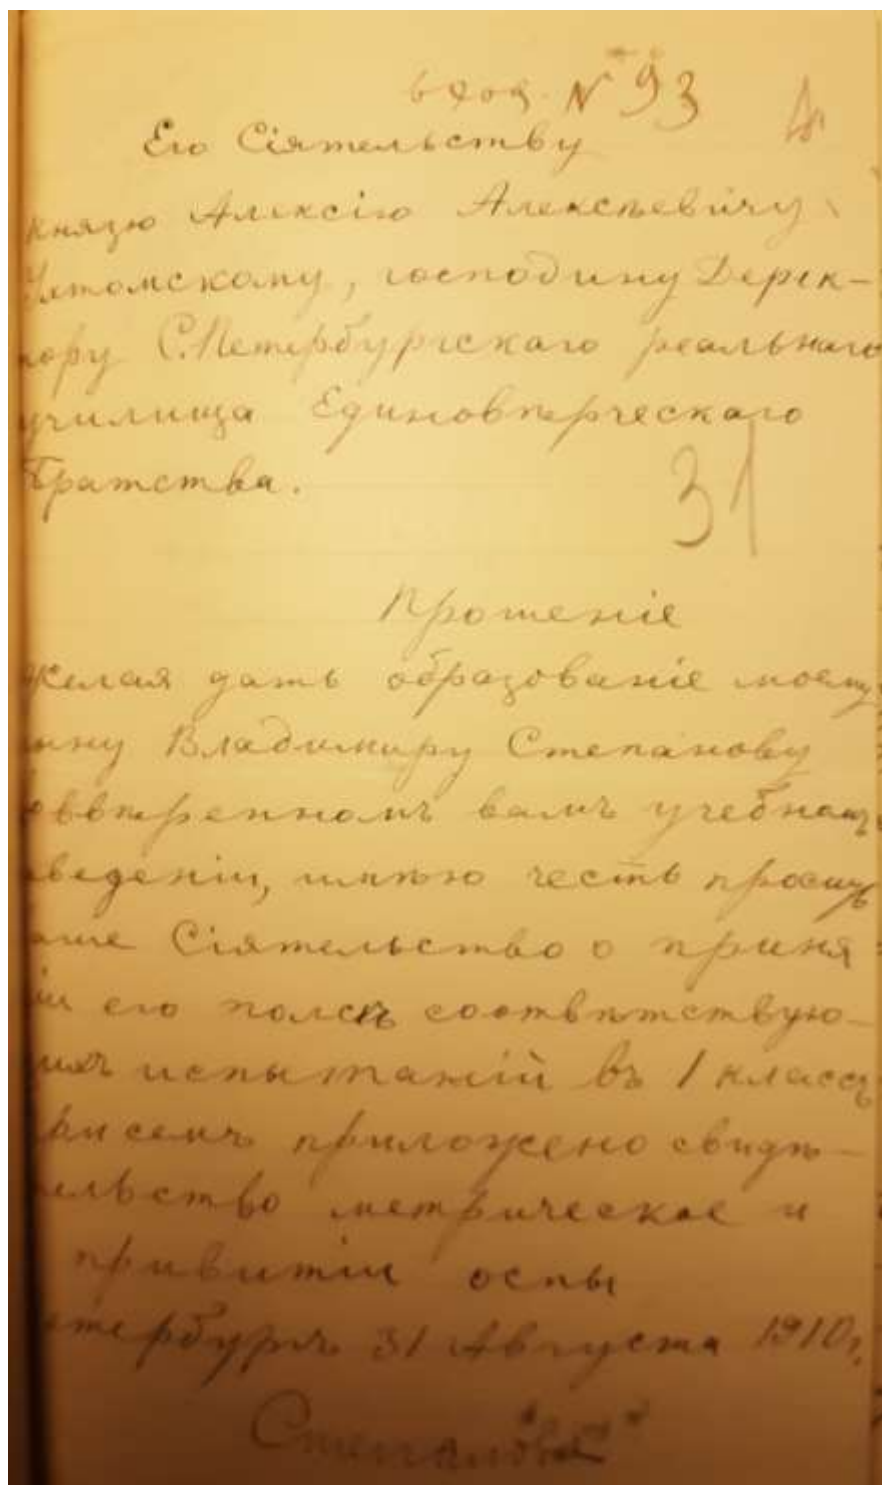 вход. № 93
4
Его Сіятельству
князю Алексію Алексѣевичу
Ухтомскому, господину Дерек-
тору С.Петербургскаго реальнаго
училища Единовѣрческаго
Братства.
31
Прошеніе
Желая дать образованіе моему
сыну Владимиру Степанову
ввѣренномъ вамъ учебномъ
заведеніи, имѣю честь просить
Ваше Сіятельство о приня
тіи его послѣ соотвѣтствую-
щихъ испытаній въ 1 классъ
При семъ приложено свидѣ-
тельство метрическое и
привитіи оспы
Петербургъ 31 Августа 1910г.
Степанова